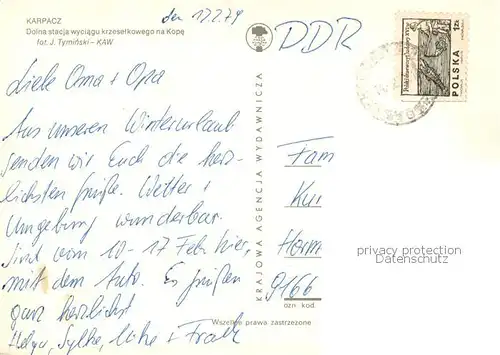 KARPACZ
Dolna stacja wyciągu krzesełkowego na Kopę
fot. J. Tymiński – KAW
den 13.2.79
Liebe Oma + Opa
Aus unserem Winterurlaub
senden wir Euch die herz-
lichsten Grüße. Wetter +
Umgebung wunderbar.
Sind vom 10-17 Feb. hier,
mit dem Auto. Es grüßen
ganz herzlichst
Helga, Sylke, Mike + Frank
KRAJOWA AGENCJA WYDAWNICZA
DDR
Fam
Kur
Horm
9166
ozn kod.
Wszelkie prawa zastrzeżone
POLSKA
1 ZŁ
privacy protection
Datenschutz